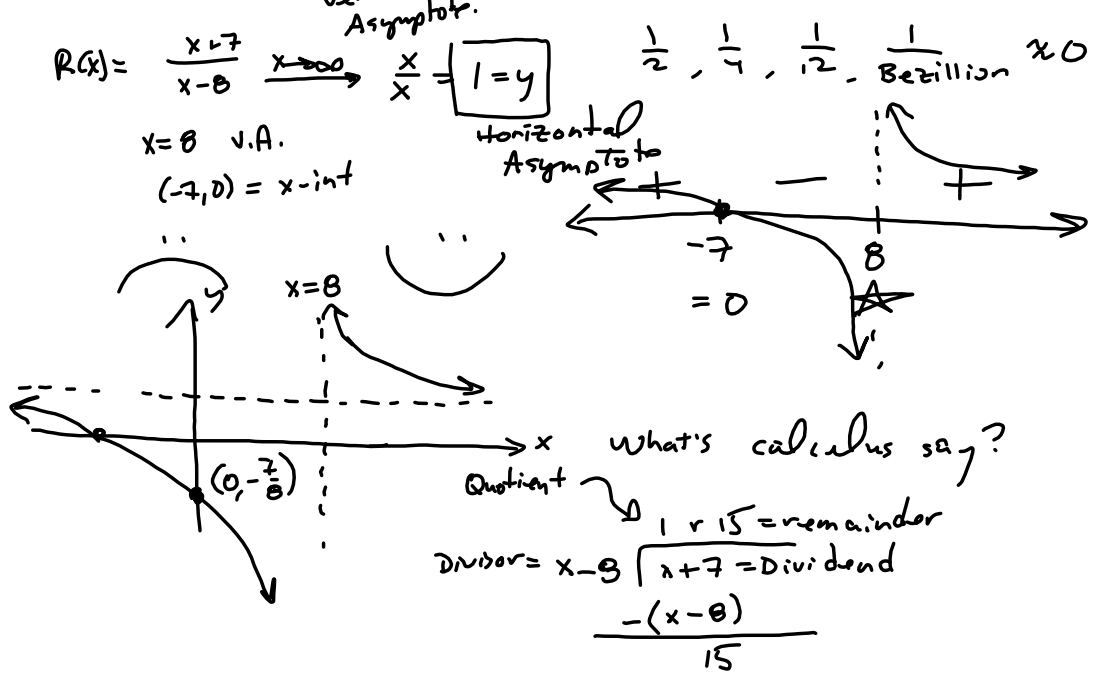 Asymptote.
R(x) = x+7 / x-8 x→∞ x/x = 1 = y
1/2, 1/4, 1/12, 1/Bezillion ≈ 0
x=8 V.A.
Horizontal
Asymptote
(-7,0) = x-int
+ − +
-7 8
= 0
y
x=8
x
(0,-7/8)
What's calculus say?
Quotient
1 r 15 = remainder
Divisor = x-8 x+7 = Dividend
-(x-8)
15